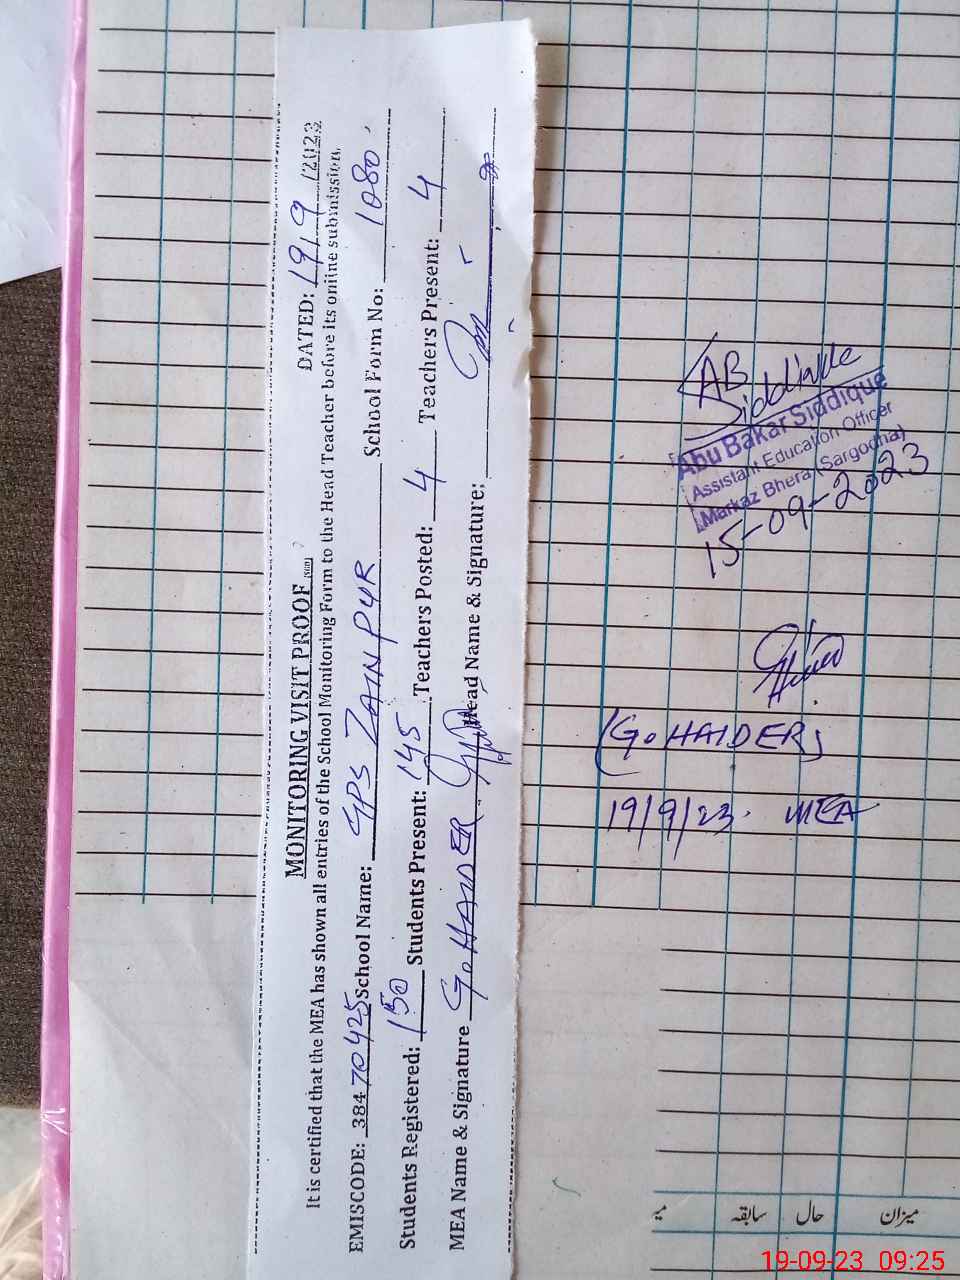 MONITORING VISIT PROOF
DATED: 19/9/2023
It is certified that the MEA has shown all entries of the School Monitoring Form to the Head Teacher before its online submission.
EMISCODE: 38470425 School Name: GPS ZAIN PUR School Form No: 1080
Students Registered: 150 Students Present: 145 Teachers Posted: 4 Teachers Present: 4
MEA Name & Signature G. HAIDER Head Name & Signature:
AB Siddique
Abu Bakar Siddique
Assistant Education Officer
Markaz Bhera (Sargodha)
15-09-2023
(G. HAIDER)
19/9/23. MEA
سابقہ حال میزان
19-09-23 09:25